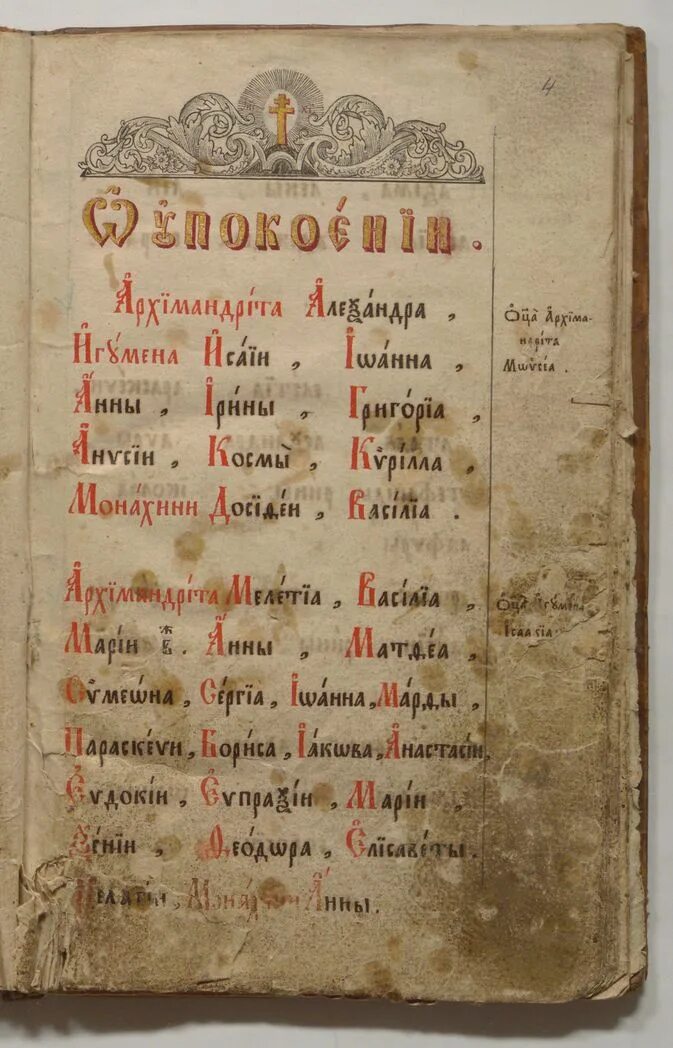 4
Ѡ҆ ᲂу҆покое́нїи .
А҆рхїмандрі́та А҆леѯа́ндра ,
И҆гꙋ́мена И҆са́їи , І҆ѡа́нна ,
А҆́нны , І҆ри́ны , Григо́рїа ,
А҆нѵсїи , Космы̀ , Кѷрі́лла ,
Мона́хини Досїѳе́и , Васі́лїа .
А҆рхїмандрі́та Меле́тїа , Васі́лїа ,
Марі́и в҃ж . А҆́нны , Матѳе́а ,
Сѷмеѡ́на , Се́ргїа , І҆ѡа́нна , Ма́рѳы ,
Параске́ѵи , Бори́са , І҆а́кѡва , А҆настасі́и ,
Е҆ѵдокі́и , Е҆ѵпраѯі́и , Марі́и ,
Ѯе́нїи , Ѳео́дѡра , Е҆лїсаве́ты .
Пелагі́и , Мона́хини А҆́нны .
Ѻ҆ц҃а̀ А҆рхїма-
ндрі́та
Мѡѷсе́а .
Ѻ҆ц҃а̀ И҆гꙋмена
Ісаакїа .